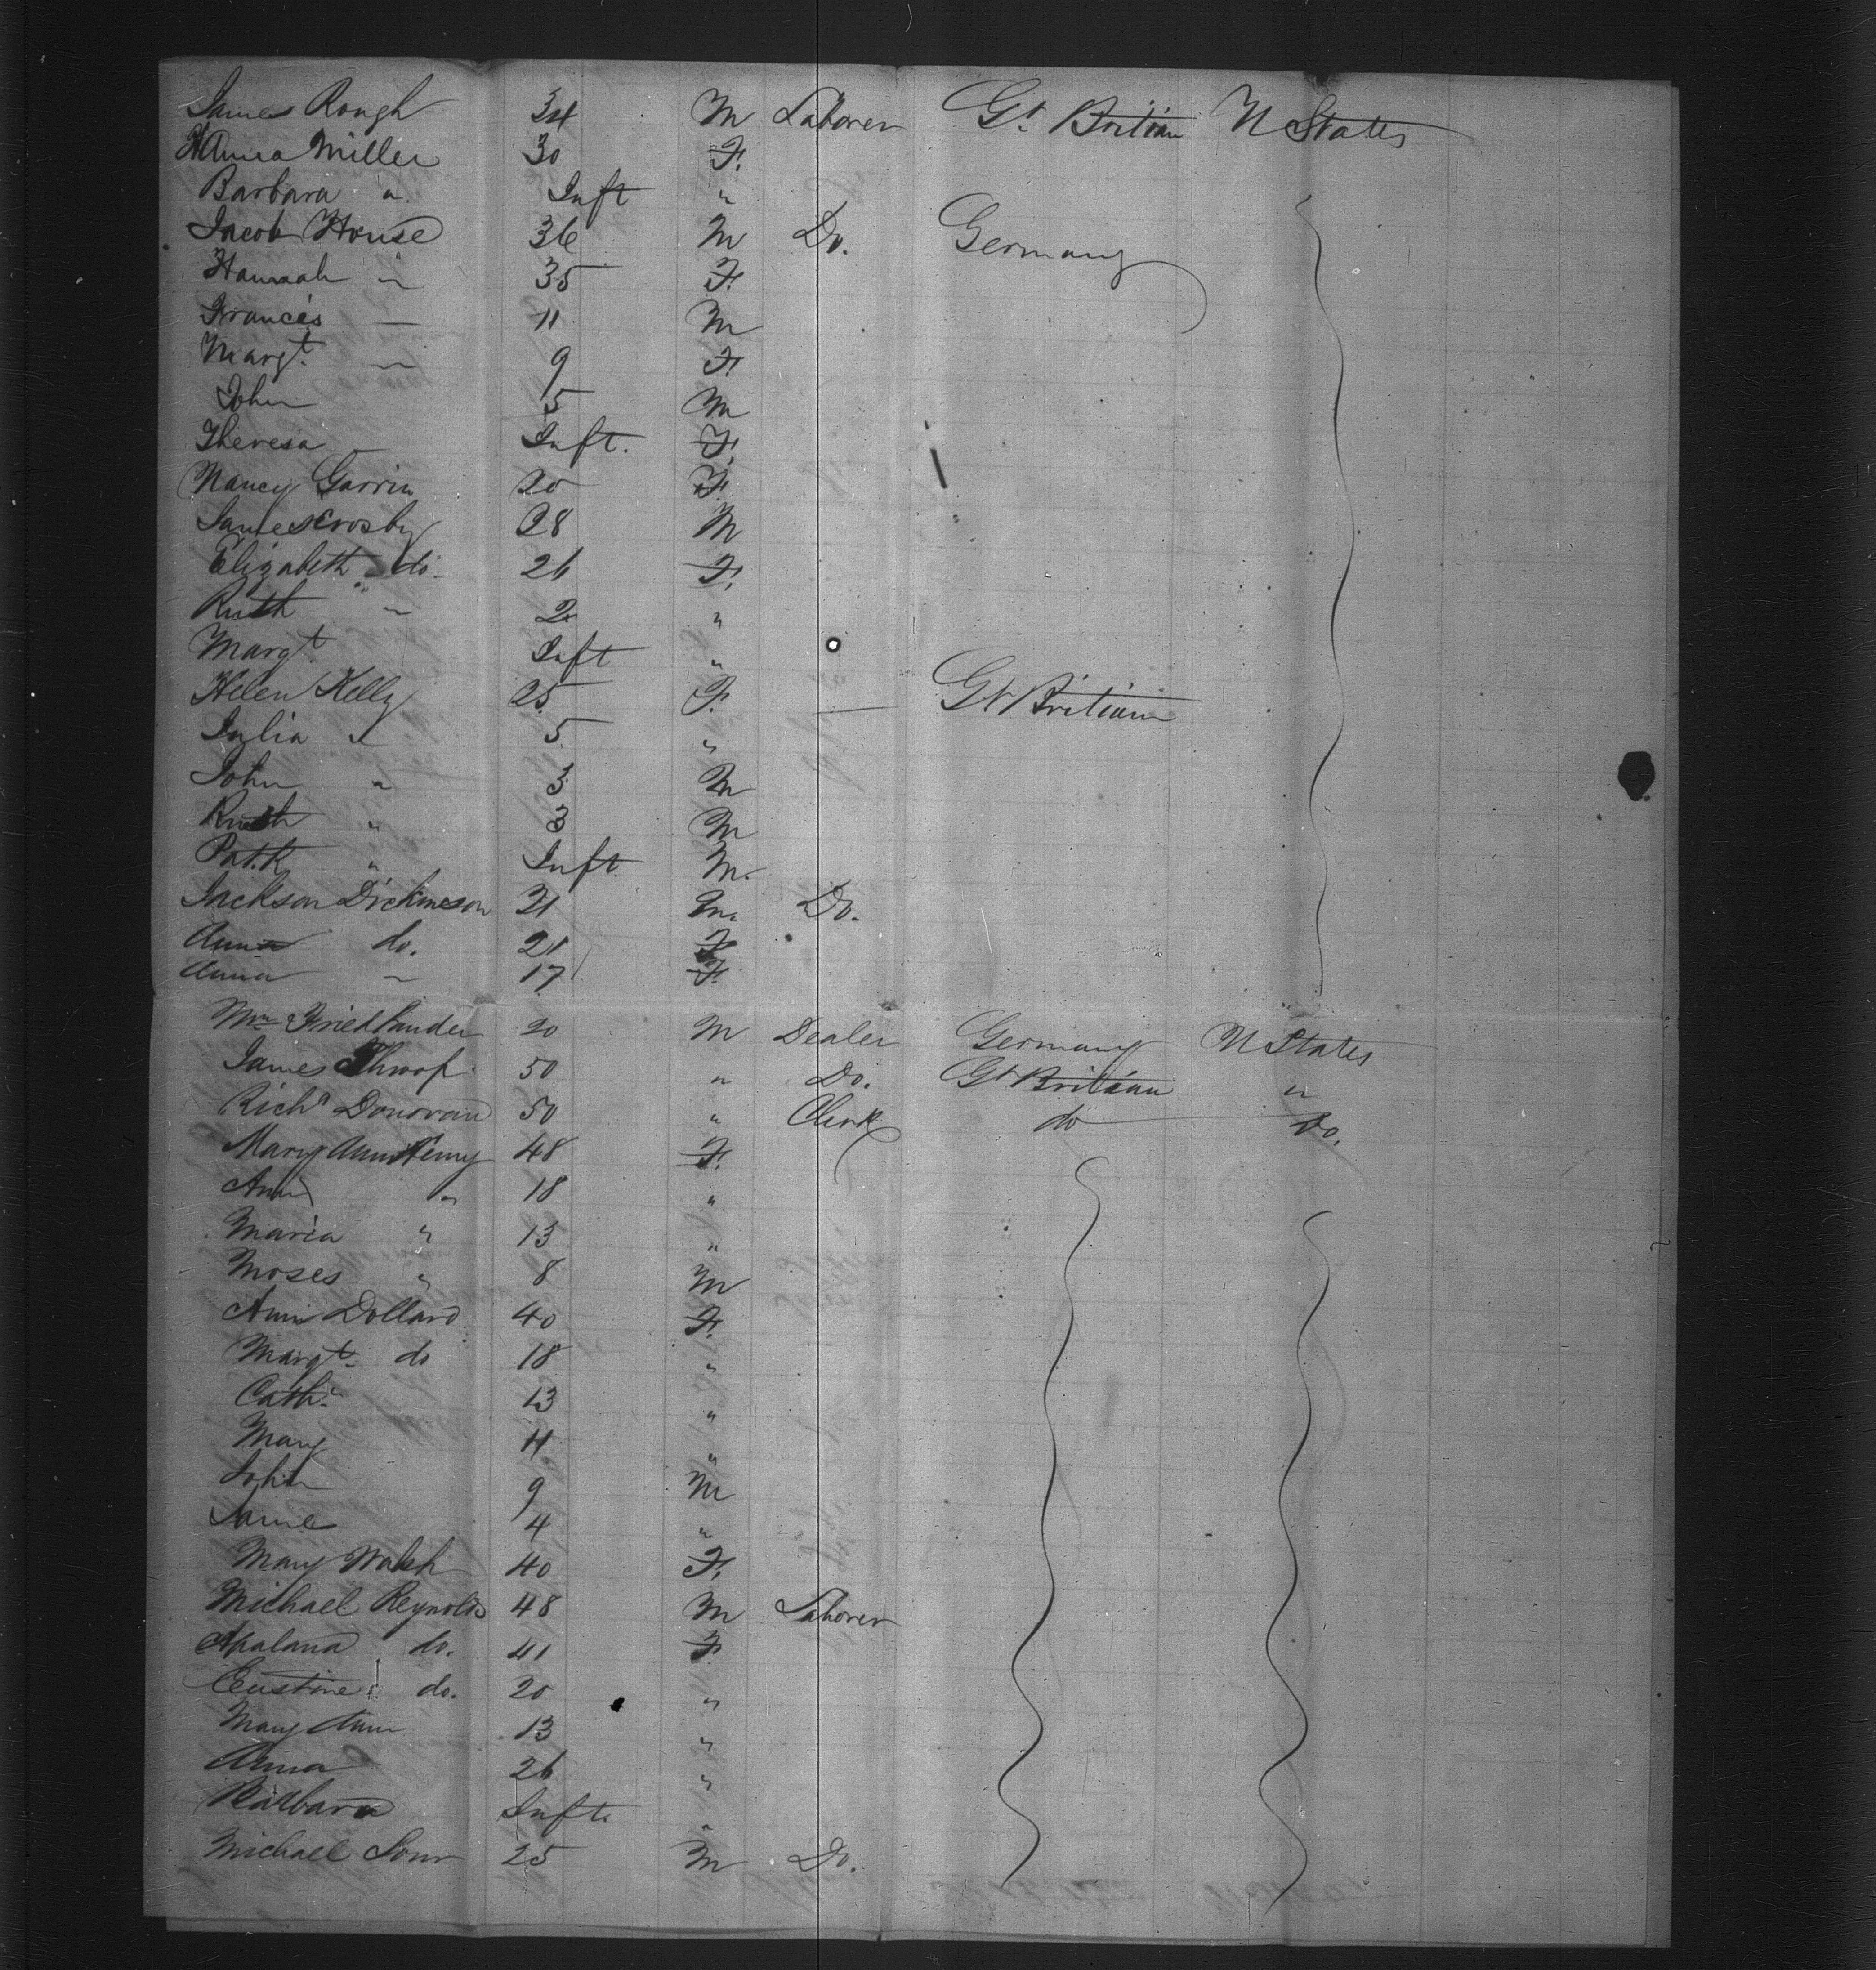 James Rough 34 M Laborer Gt. Britian U States
Anna Miller 30 F.
Barbara " Inft "
Jacob House 36 M Do. Germany
Hannah " 35 F.
Francis — 11 M
Margt. " 9 F.
John 5 M
Theresa Inft. F.
Nancy Garrin 20 F.
James Crosby 28 M
Elizabeth do 26 F.
Ruth " 2 "
Margt Inft "
Helen Kelly 25 F. — Gt Britian
Julia " 5 "
John " 3 M
" 3 M
Pat.k " Inft. M.
Jackson Dickineson 21 M. Do.
Anna do. 21 F
Anna " 17 F.
Wm Friedlander 20 M Dealer Germany U States
James Throop 50 " Do. Gt Britian "
Richd Donovan 50 " Clerk do Do.
Mary Ann 48 F.
Ann " 18 "
Maria " 13 "
Moses " 8 M
Ann Dollard 40 F.
Margt. do 18 "
Cath. 13 "
Mary 11 "
John 9 M
4 "
Mary Walsh 40 F.
Michael Reynolds 48 M Laborer
do. 41 F
do. 20 "
Mary Ann 13 "
Anna 26 "
Barbara Inft. "
Michael 25 M Do.